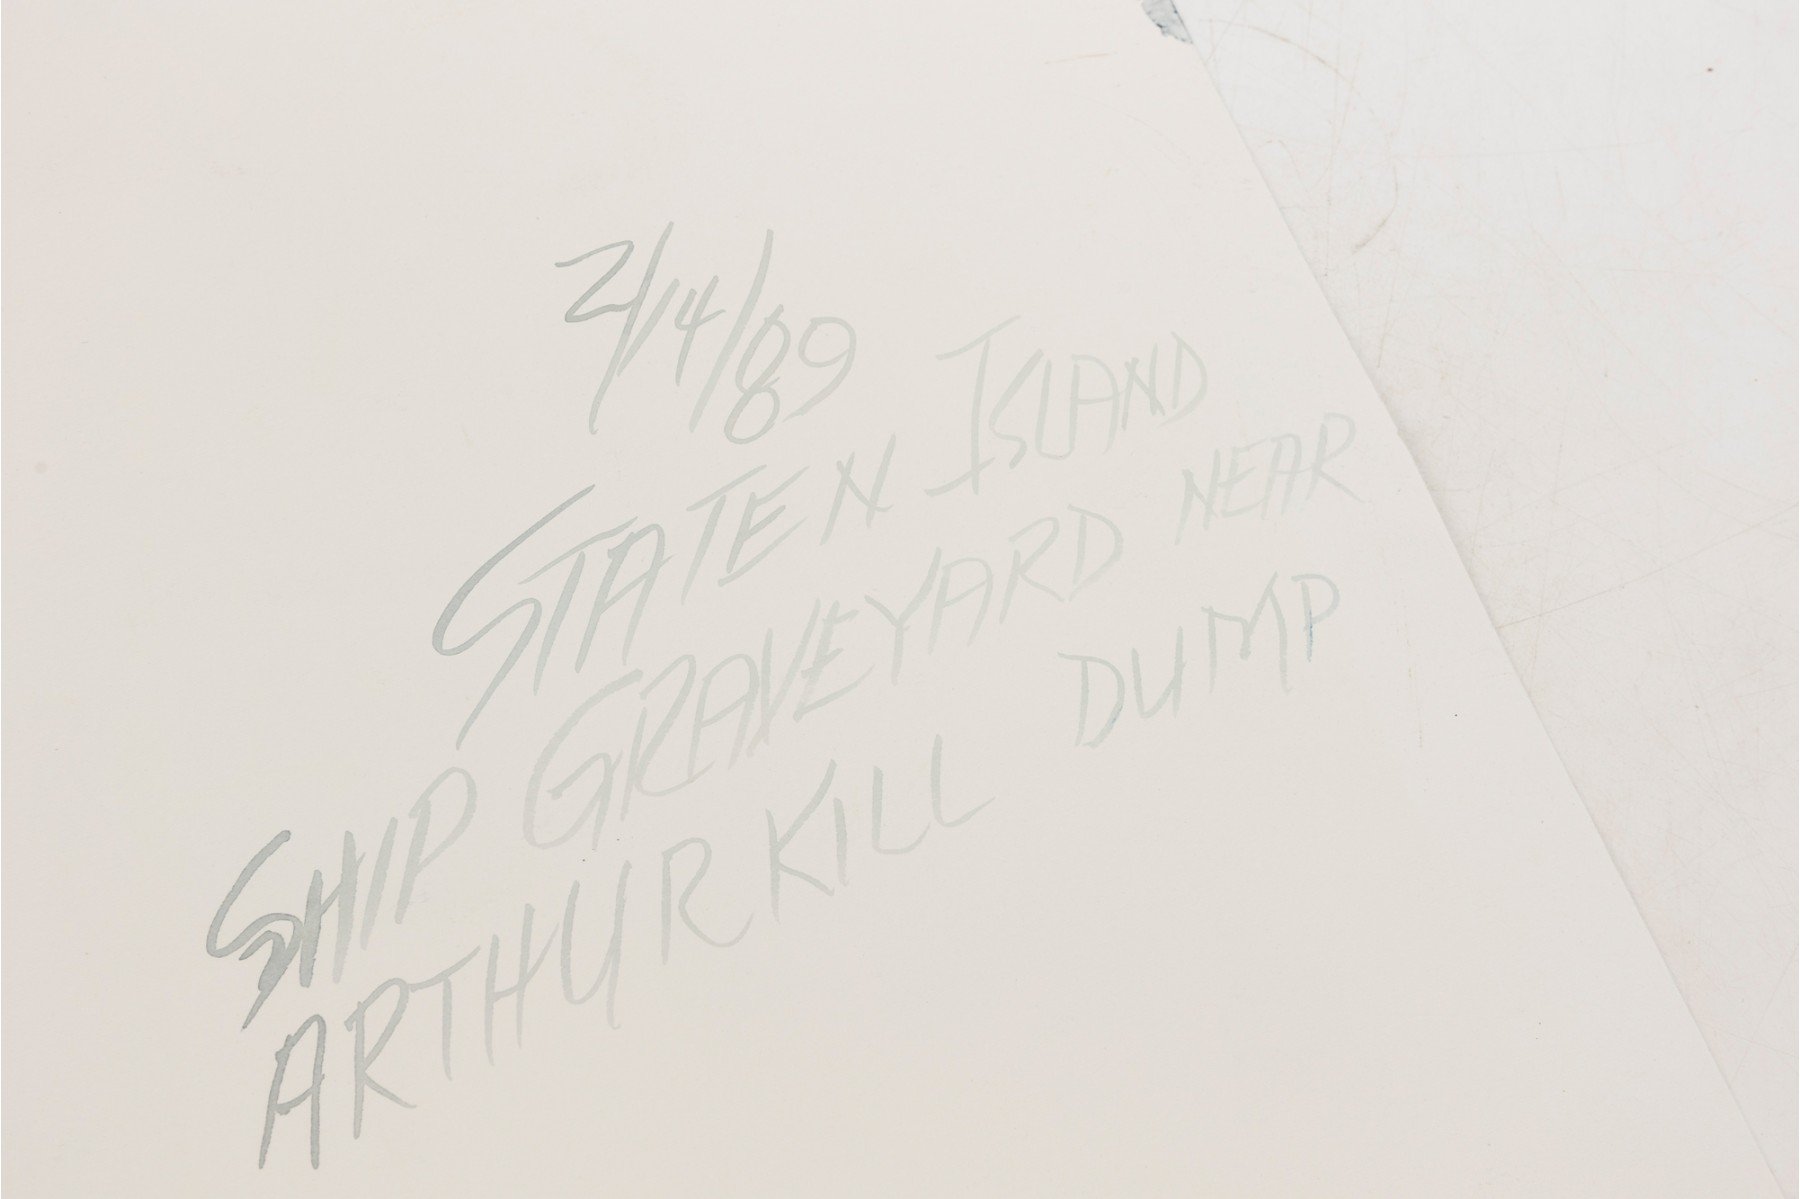 2/14/89
STATEN ISLAND
SHIP GRAVEYARD NEAR
ARTHUR KILL DUMP